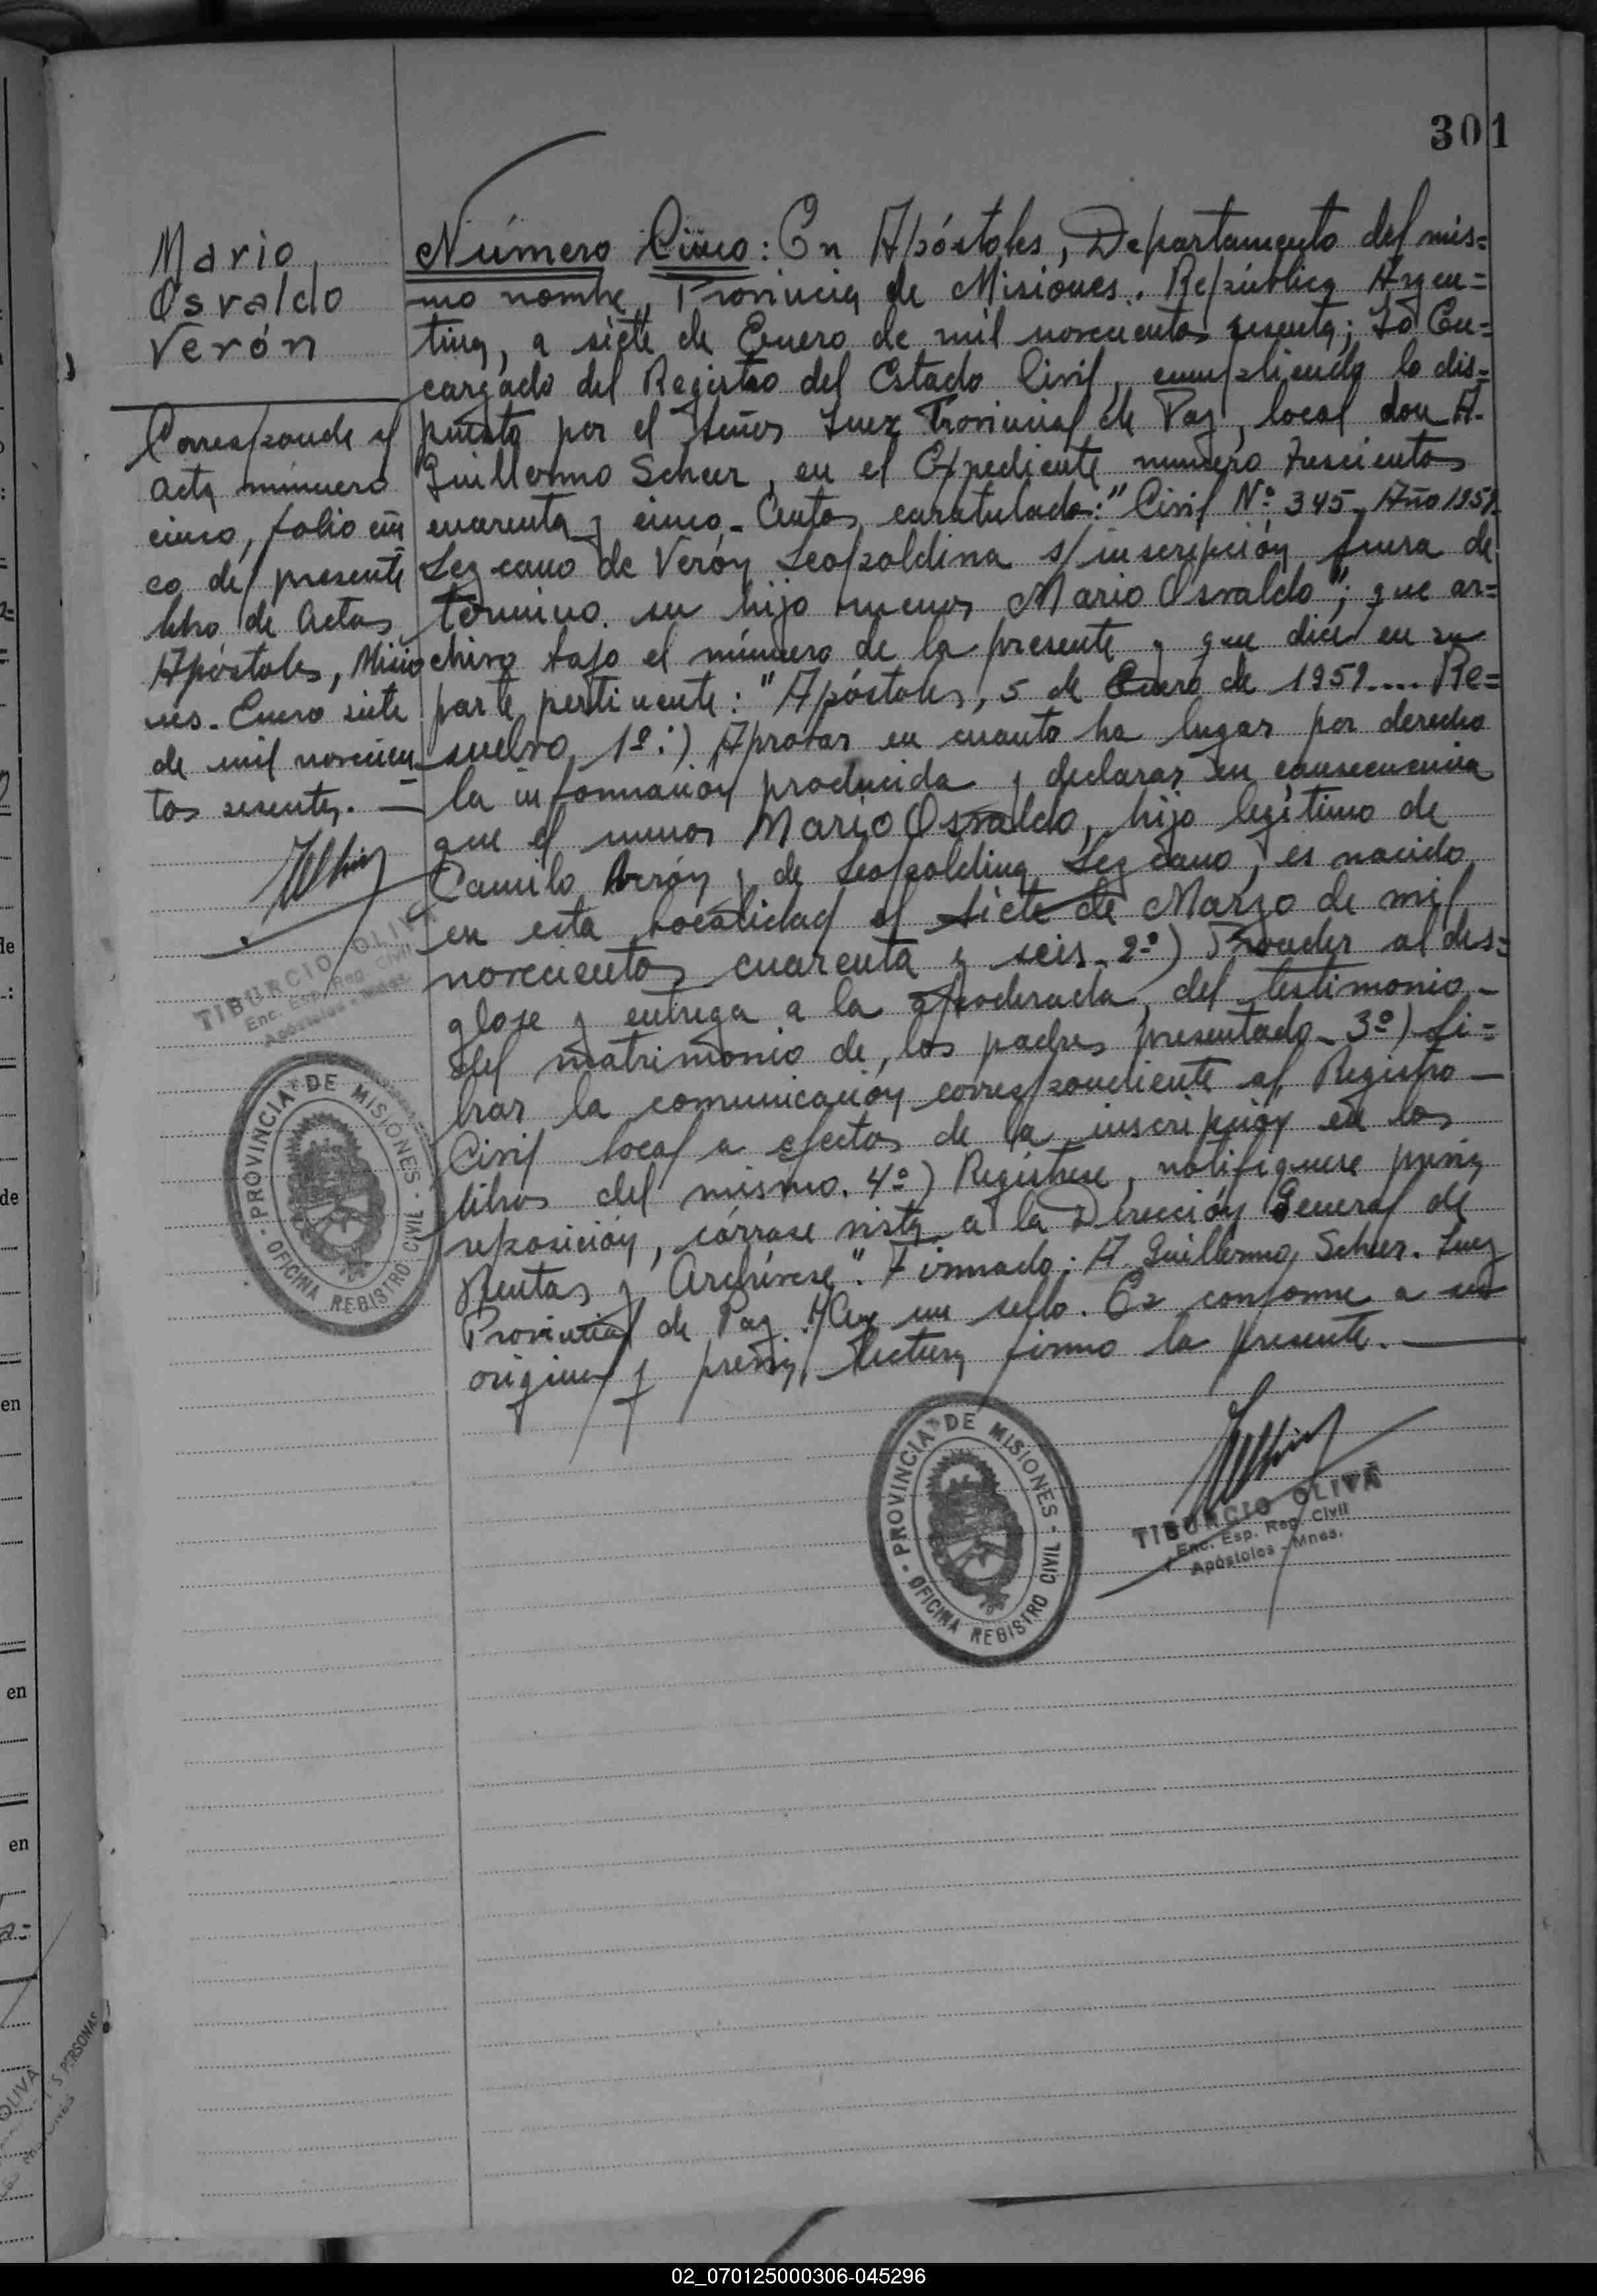 301
Mario
Osvaldo
Verón
Corresponde al
acta número
cinco, folio cin
co del presente
libro de Actas
Apóstoles, Misio
nes. Enero siete
de mil novecien
tos sesenta. —
TIBURCIO OLIVA
Enc. Esp. Reg. Civil
Apóstoles - Mnes.
PROVINCIA DE MISIONES - OFICINA REGISTRO CIVIL -
Número Cinco: En Apóstoles, Departamento del mis=
mo nombre, Provincia de Misiones, República Argen=
tina, a siete de Enero de mil novecientos sesenta; Yo En=
cargado del Registro del Estado Civil, cumpliendo lo dis=
puesto por el Señor Juez Provincial de Paz, local don A.
Guillermo Scheer, en el Expediente número trescientos
cuarenta y cinco - Autos caratulados: "Civil Nº 345 - Año 1959
Lezcano de Verón Leopoldina s/ inscripción fuera de
término su hijo menor Mario Osvaldo"; que ar=
chivo bajo el número de la presente y que dice en su
parte pertinente: "Apóstoles, 5 de Enero de 1959.... Re=
suelvo 1º:) Aprobar en cuanto ha lugar por derecho
la información producida y declarar en consecuencia
que el menor Mario Osvaldo, hijo legítimo de
Camilo Verón y de Leopoldina Lezcano, es nacido
en esta localidad el siete de Marzo de mil
novecientos cuarenta y seis - 2º) Proceder al des=
glose y entrega a la apoderada, del testimonio -
del matrimonio de los padres presentado - 3º) Li=
brar la comunicación correspondiente al Registro —
Civil local a efectos de la inscripción en los
libros del mismo. 4º) Regístrese, notifíquese previa
reposición, córrase vista a la Dirección General de
Rentas y Archívese". Firmado: A. Guillermo Scheer. Juez
Provincial de Paz. Hay un sello. Es conforme a su
original y previa lectura firmo la presente. —
PROVINCIA DE MISIONES - OFICINA REGISTRO CIVIL -
TIBURCIO OLIVA
Enc. Esp. Reg. Civil
Apóstoles - Mnes.
de
en
en
en
OLIVA
PERSONAS
02_070125000306-045296